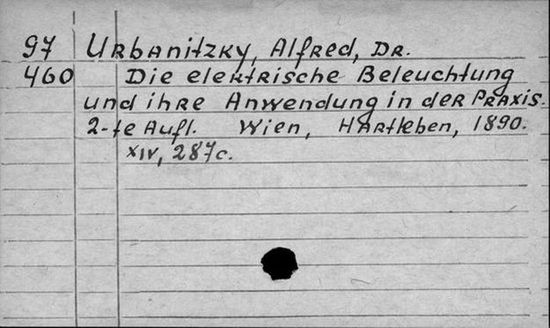 97 Urbanitzky, Alfred, Dr.
460 Die elektrische Beleuchtung
und ihre Anwendung in der Praxis.
2-te Aufl. Wien, Hartleben, 1890.
XIV, 287c.